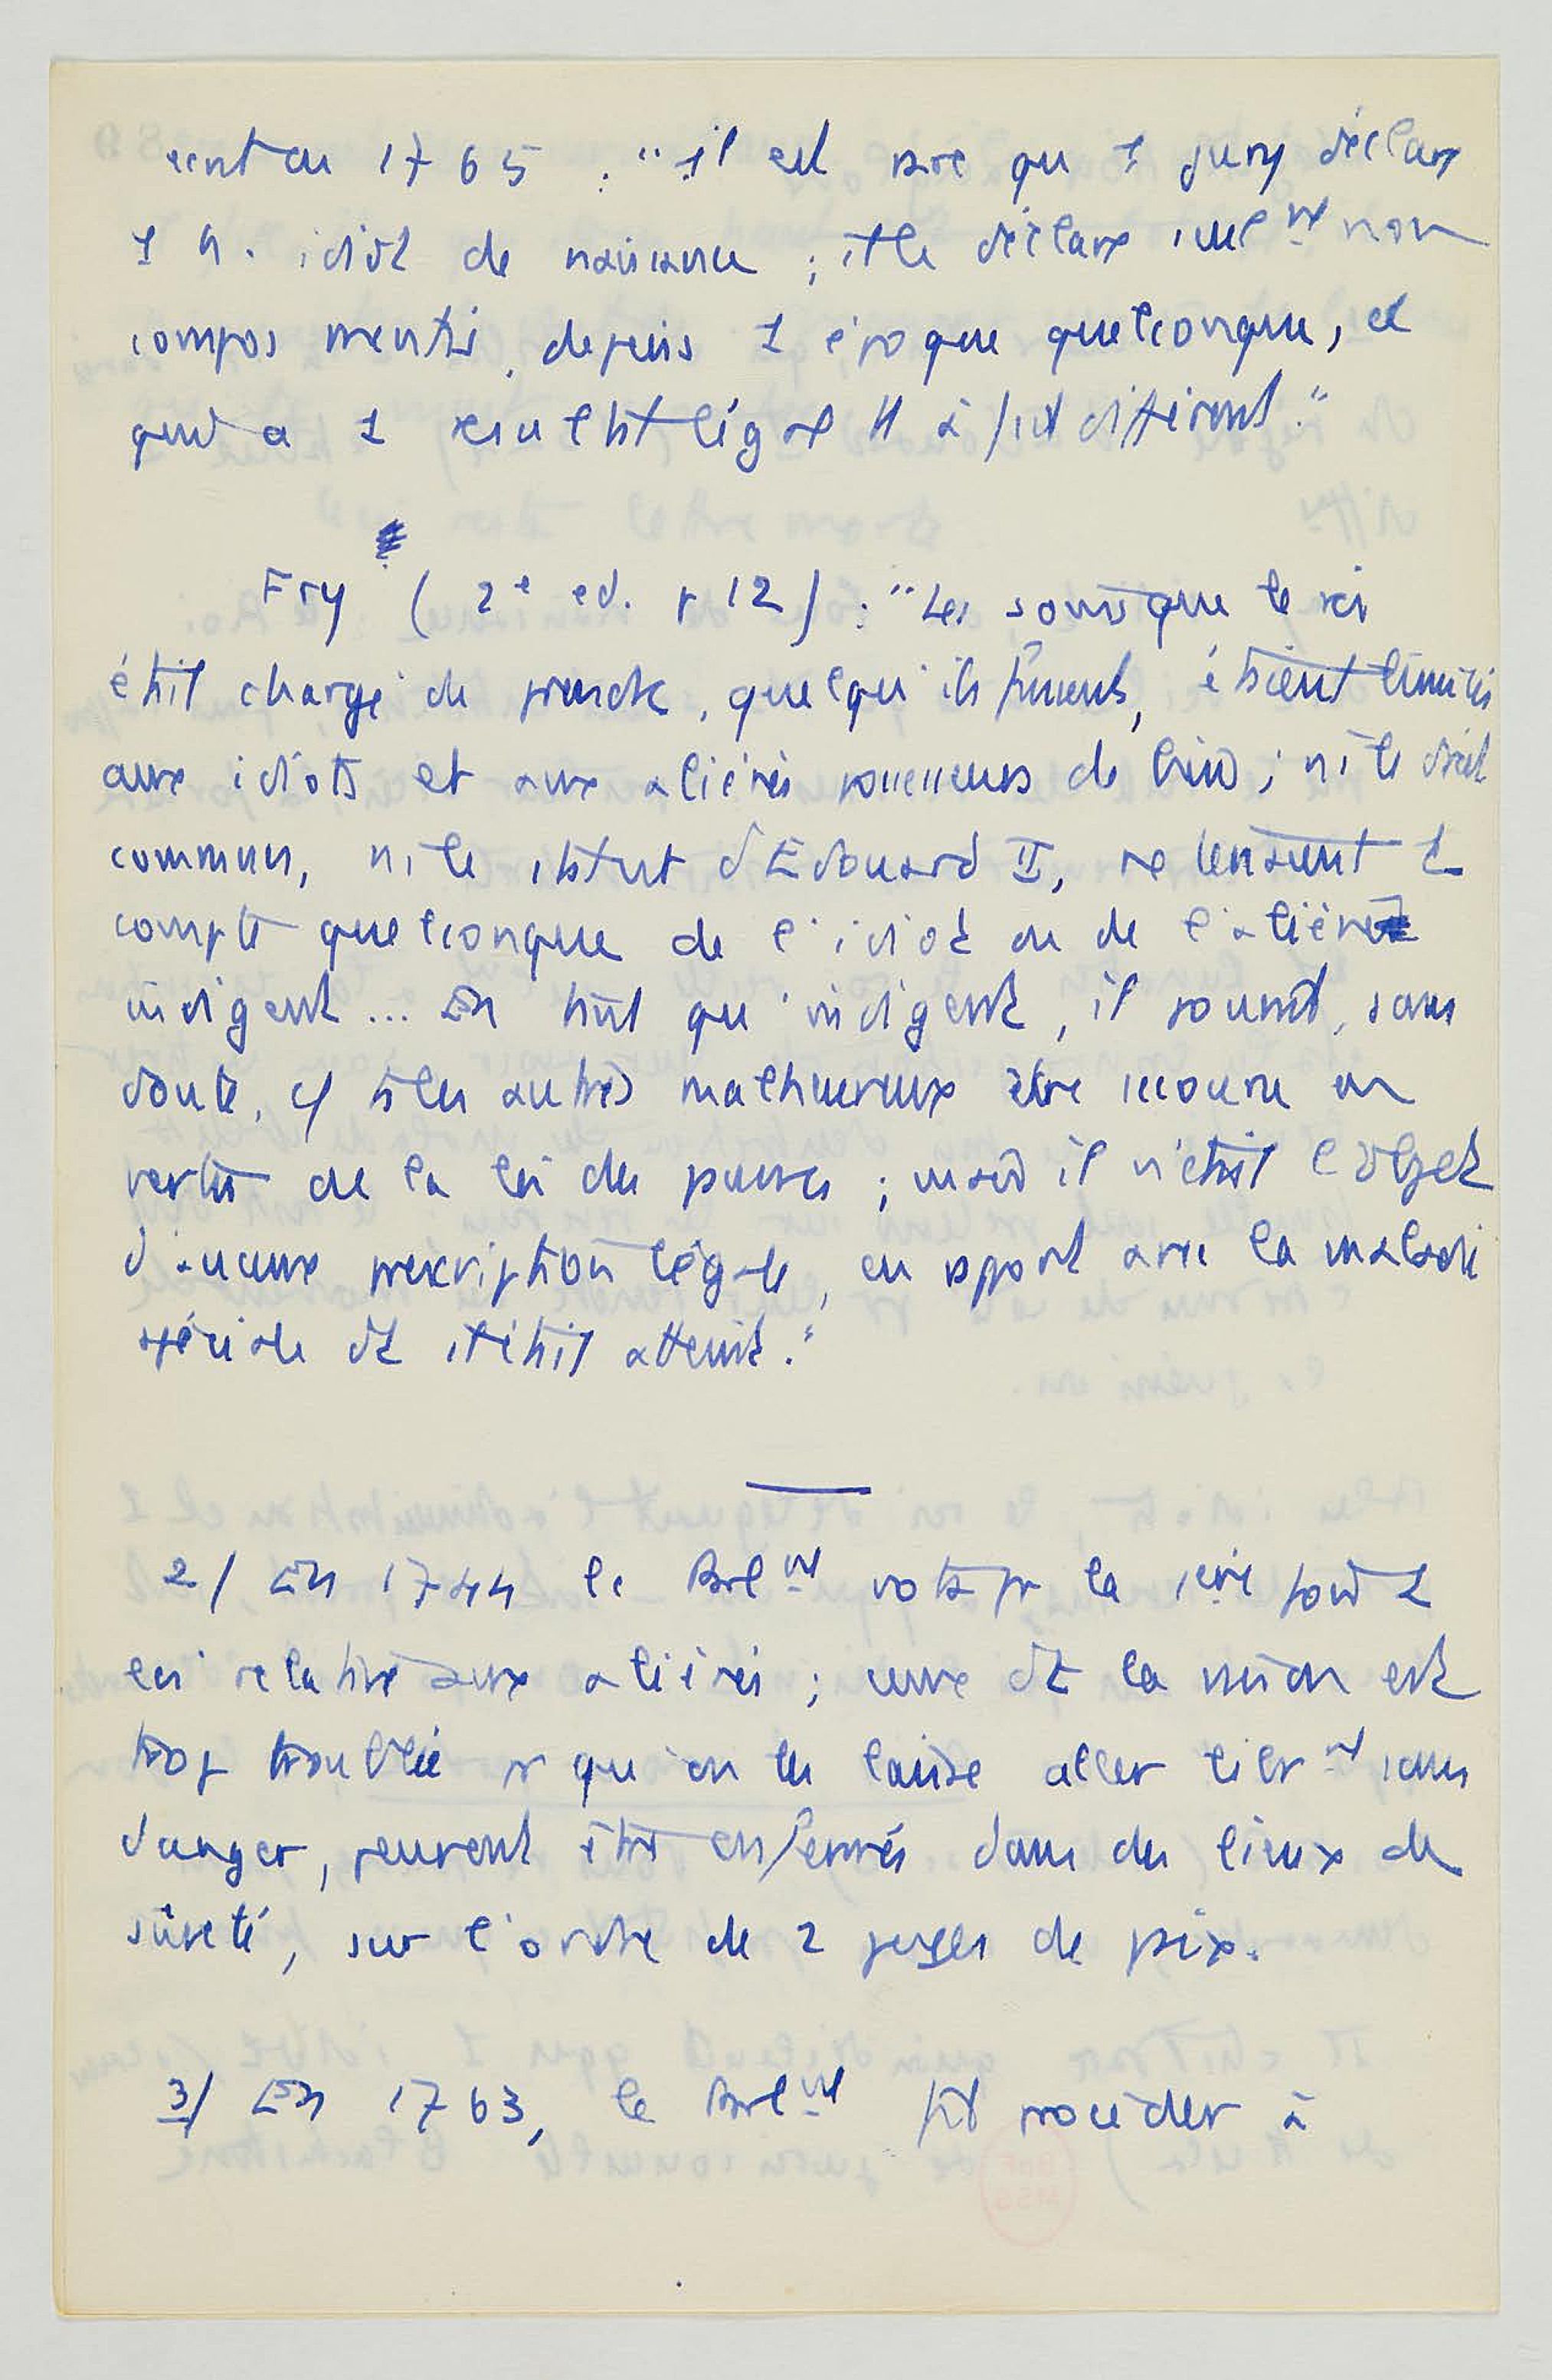 écrit en 1765 : "il est rare qu'1 jury déclare
1 h. idiot de naissance ; il le déclare seulnt non
compos mentis, depuis 1 époque quelconque, ce
qui a 1 résultat légal tt à fait différent."
Fry (2e ed. p 12) : "Les soins que le roi
était chargé de prendre, quels qu'ils fussent, étaient limités
aux idiots et aux aliénés possesseurs de biens ; ni le droit
commun, ni le statut d'Edouard II, ne tenaient 1
compte quelconque de l'idiot ou de l'aliéné
indigent... En tant qu'indigent, il pouvait, sans
doute, c/ ts les autres malheureux être secouru en
vertu de la loi des pauvres ; mais il n'était l'objet
d'aucune prescription légale, en rapport avec la maladie
spéciale dt il était atteint."
2/ En 1744 le Parlnt vota pr la 1ère fois 1
loi relative aux aliénés ; ceux dt la raison est
trop troublée pr qu'on les laisse aller librnt sans
danger, peuvent être enfermés dans des lieux de
sûreté, sur l'ordre de 2 juges de paix.
3/ En 1763, le Parlnt fit procéder à